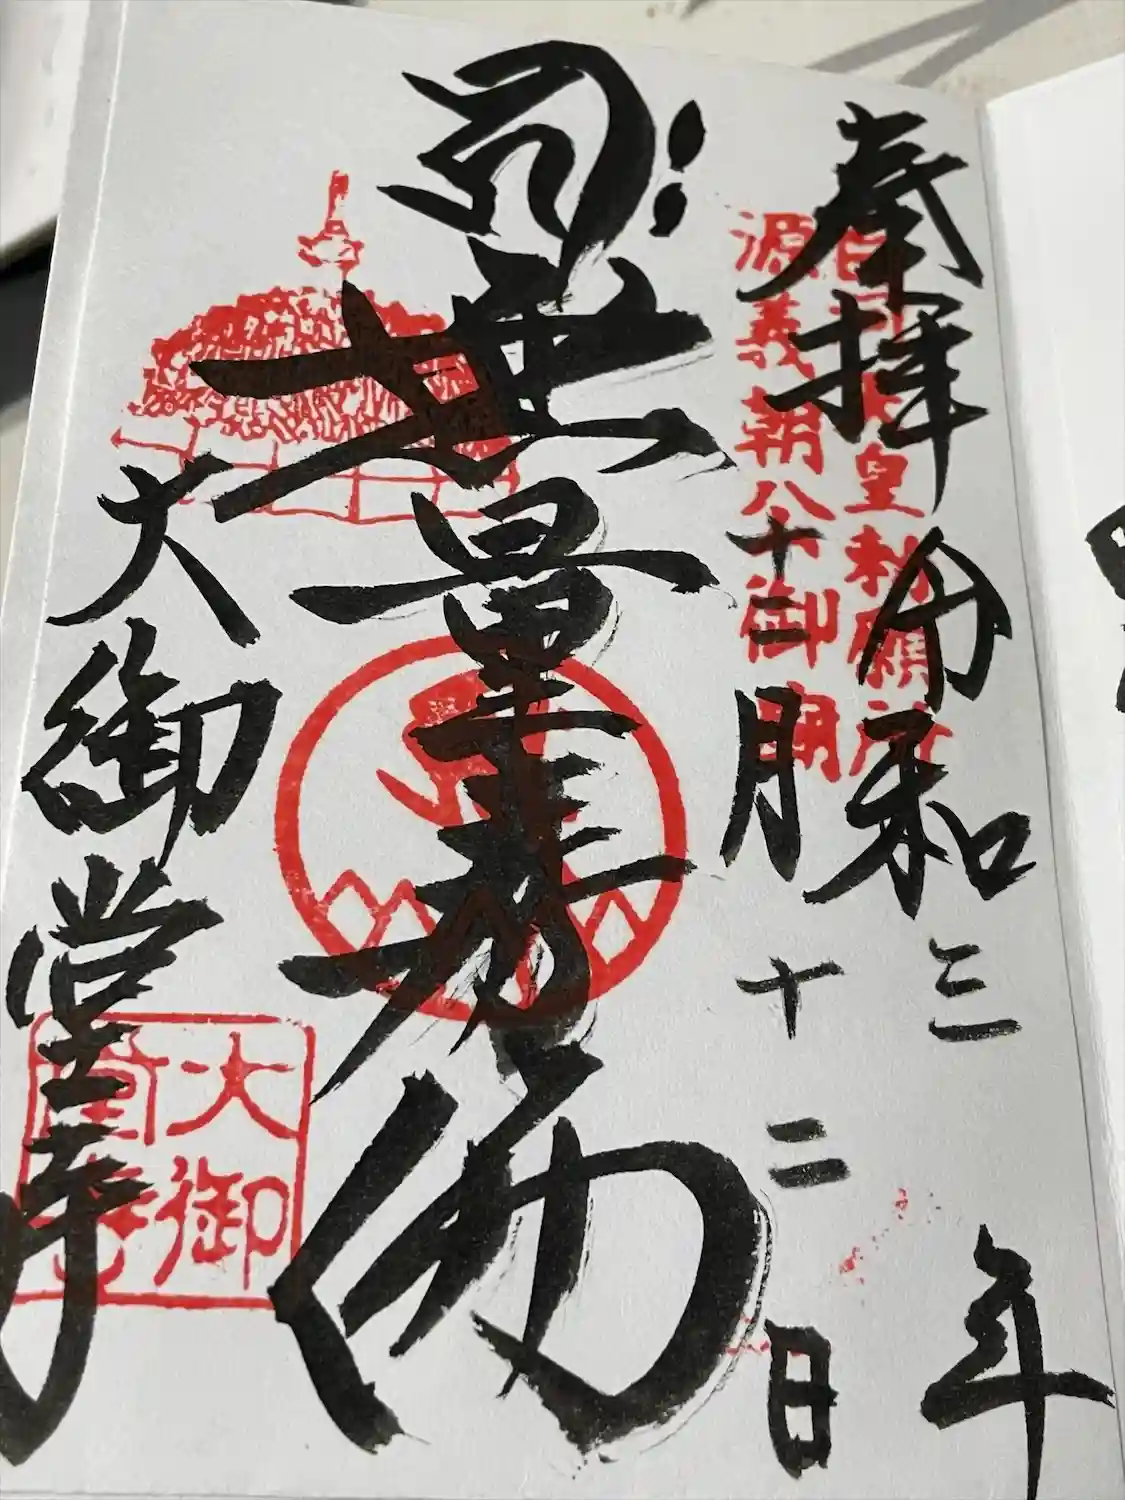 奉拝 令和三年
白河天皇勅願所
源義朝公御廟
十二月十二日
無量寿佛
大御堂寺
大御
堂寺